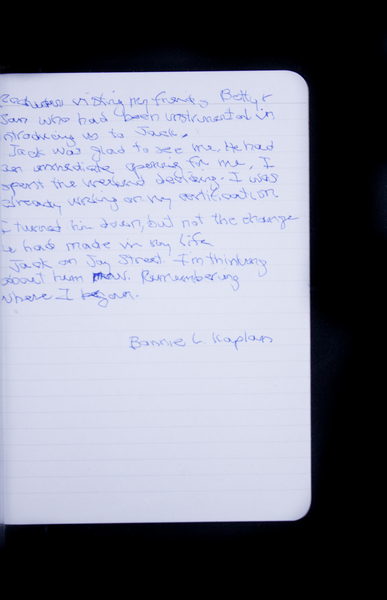 visiting my friends, Betty &
Sam who had been instrumental in
introducing us to Jack.
Jack was glad to see me. He had
an immediate opening for me. I
spent the weekend deciding. I was
already working on my certification.
I turned him down, but not the change
he had made in my life
Jack on Joy Street. I'm thinking
about him now. Remembering
where I began.
Bonnie L. Kaplan